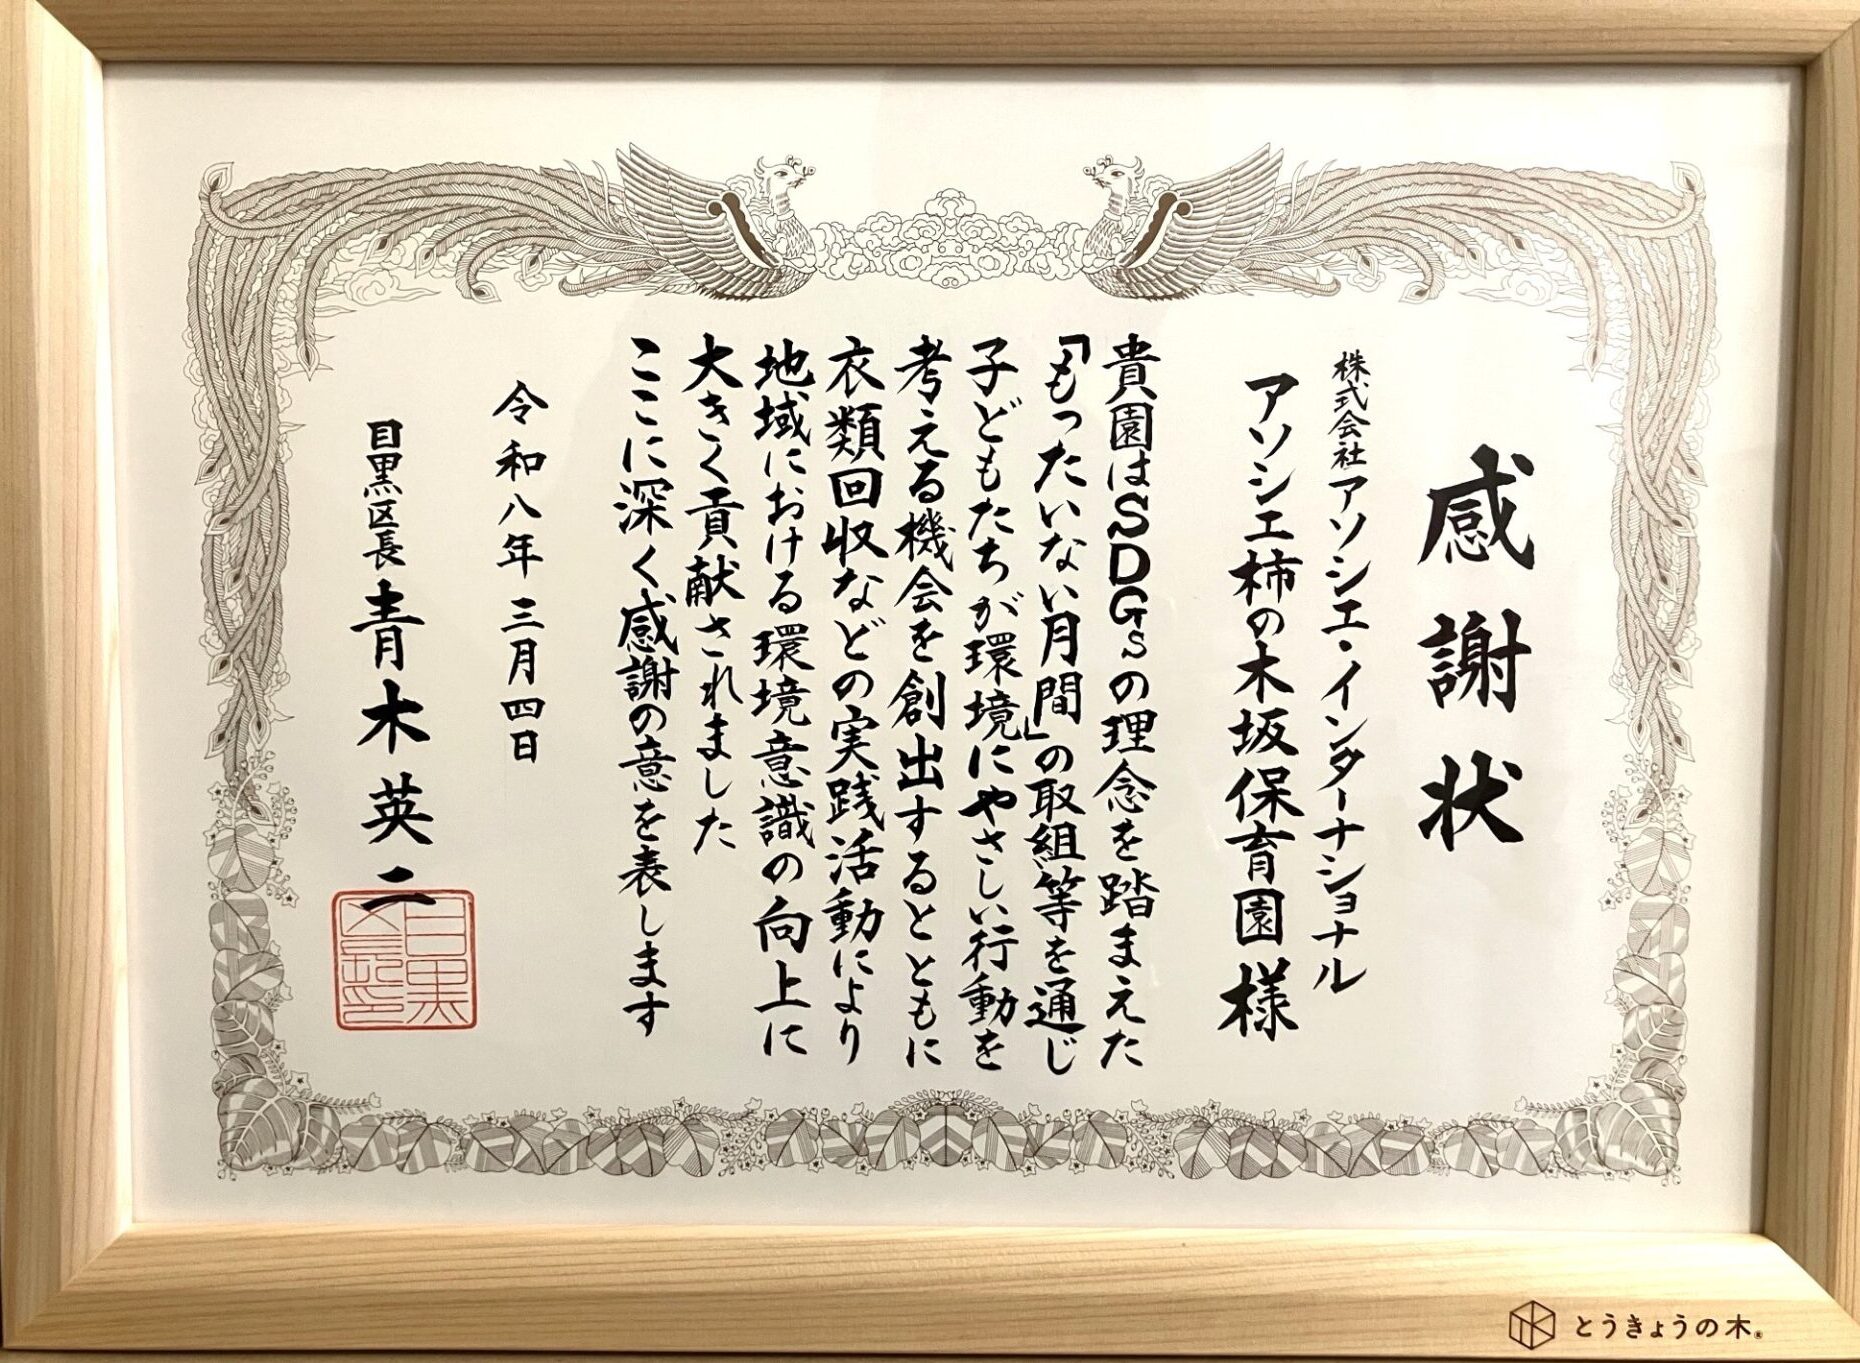 感謝状
株式会社アソシエ・インターナショナル
アソシエ柿の木坂保育園様
貴園はSDGsの理念を踏まえた
「もったいない月間」の取組等を通じ
子どもたちが環境にやさしい行動を
考える機会を創出するとともに
衣類回収などの実践活動により
地域における環境意識の向上に
大きく貢献されました
ここに深く感謝の意を表します
令和八年三月四日
目黒区長 青木英二
目黒区長印
とうきょうの木®